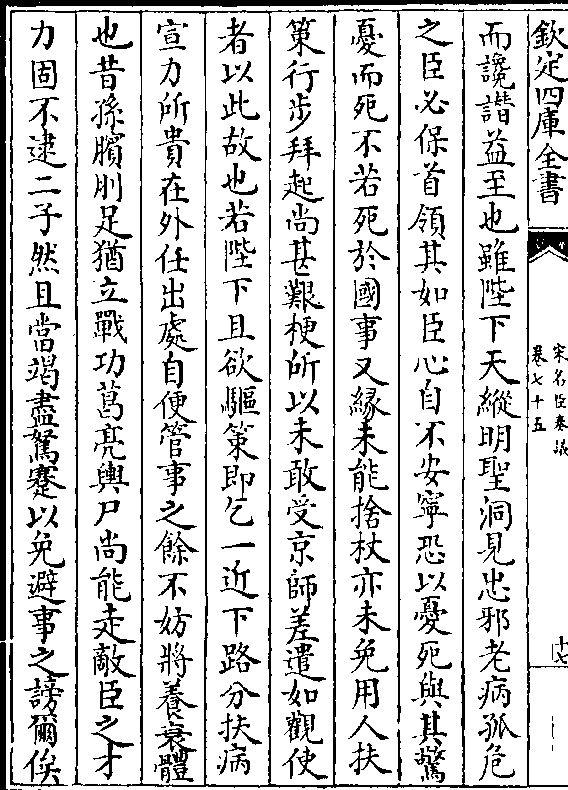 欽定四庫全書
宋名臣奏議
卷七十五
十七
而讒譖益至也雖陛下天縱明聖洞見忠邪老病孤危
之臣必保首領其如臣心自不安寧恐以憂死與其驚
憂而死不若死於國事又緣未能捨杖亦未免用人扶
策行步拜起尚甚艱梗所以未敢受京師差遣如觀使
者以此故也若陛下且欲驅策即乞一近下路分扶病
宣力所貴在外任出處自便管事之餘不妨將養衰體
也昔孫臏刖足猶立戰功葛亮輿尸尚能走敵臣之才
力固不逮二子然且當竭盡駑蹇以免避事之謗爾俟